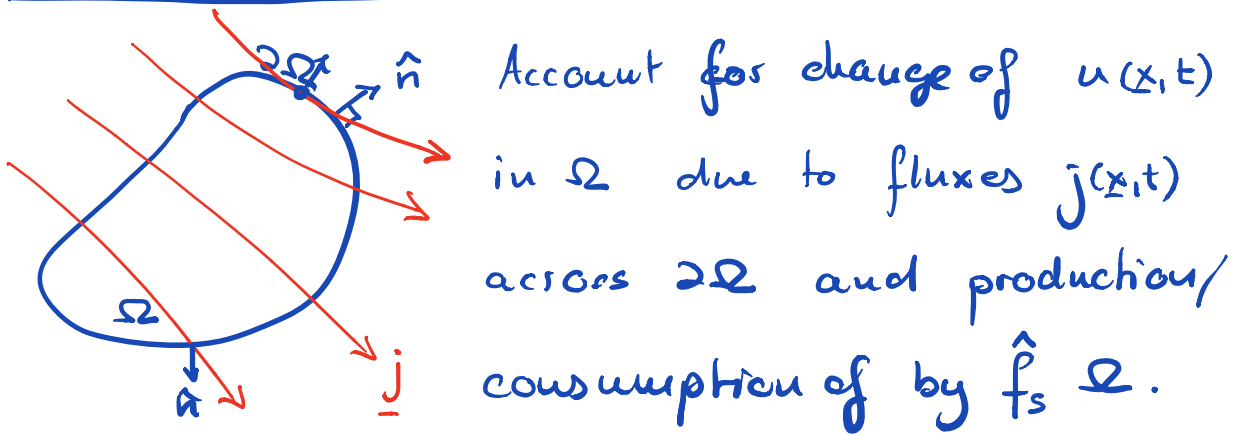 ∂Ω n̂
Account for change of u(x̲,t)
in Ω due to fluxes j(x̲,t)
across ∂Ω and production/
Ω
consumption of by f̂ₛ Ω.
n̂ j̲